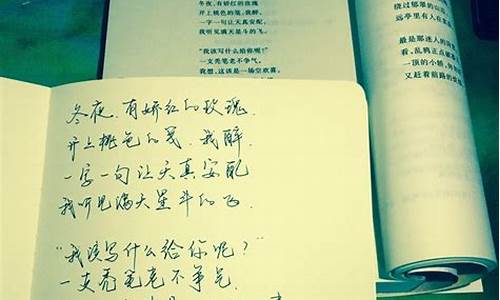 冬夜,有娇红的玫瑰
开上桃色的笺,我醉,
一字一句让天真安配
我听见满天星斗的飞。
"我该写什么给你呢?"
一支秃笔老不争气,
我想,这该是一场空欢喜,
绕过郁翠的山
远亭里有人在
最是那迷人的
看,乱鸦正点
一顶的小轿,
又赶着前路的
冬夜,有娇红的玫瑰,
开上桃色的笺,我醉,
一字一句让天真安配
我听见满天星斗的飞。
"我该写什么给你呢?"
一支秃笔老不争气,